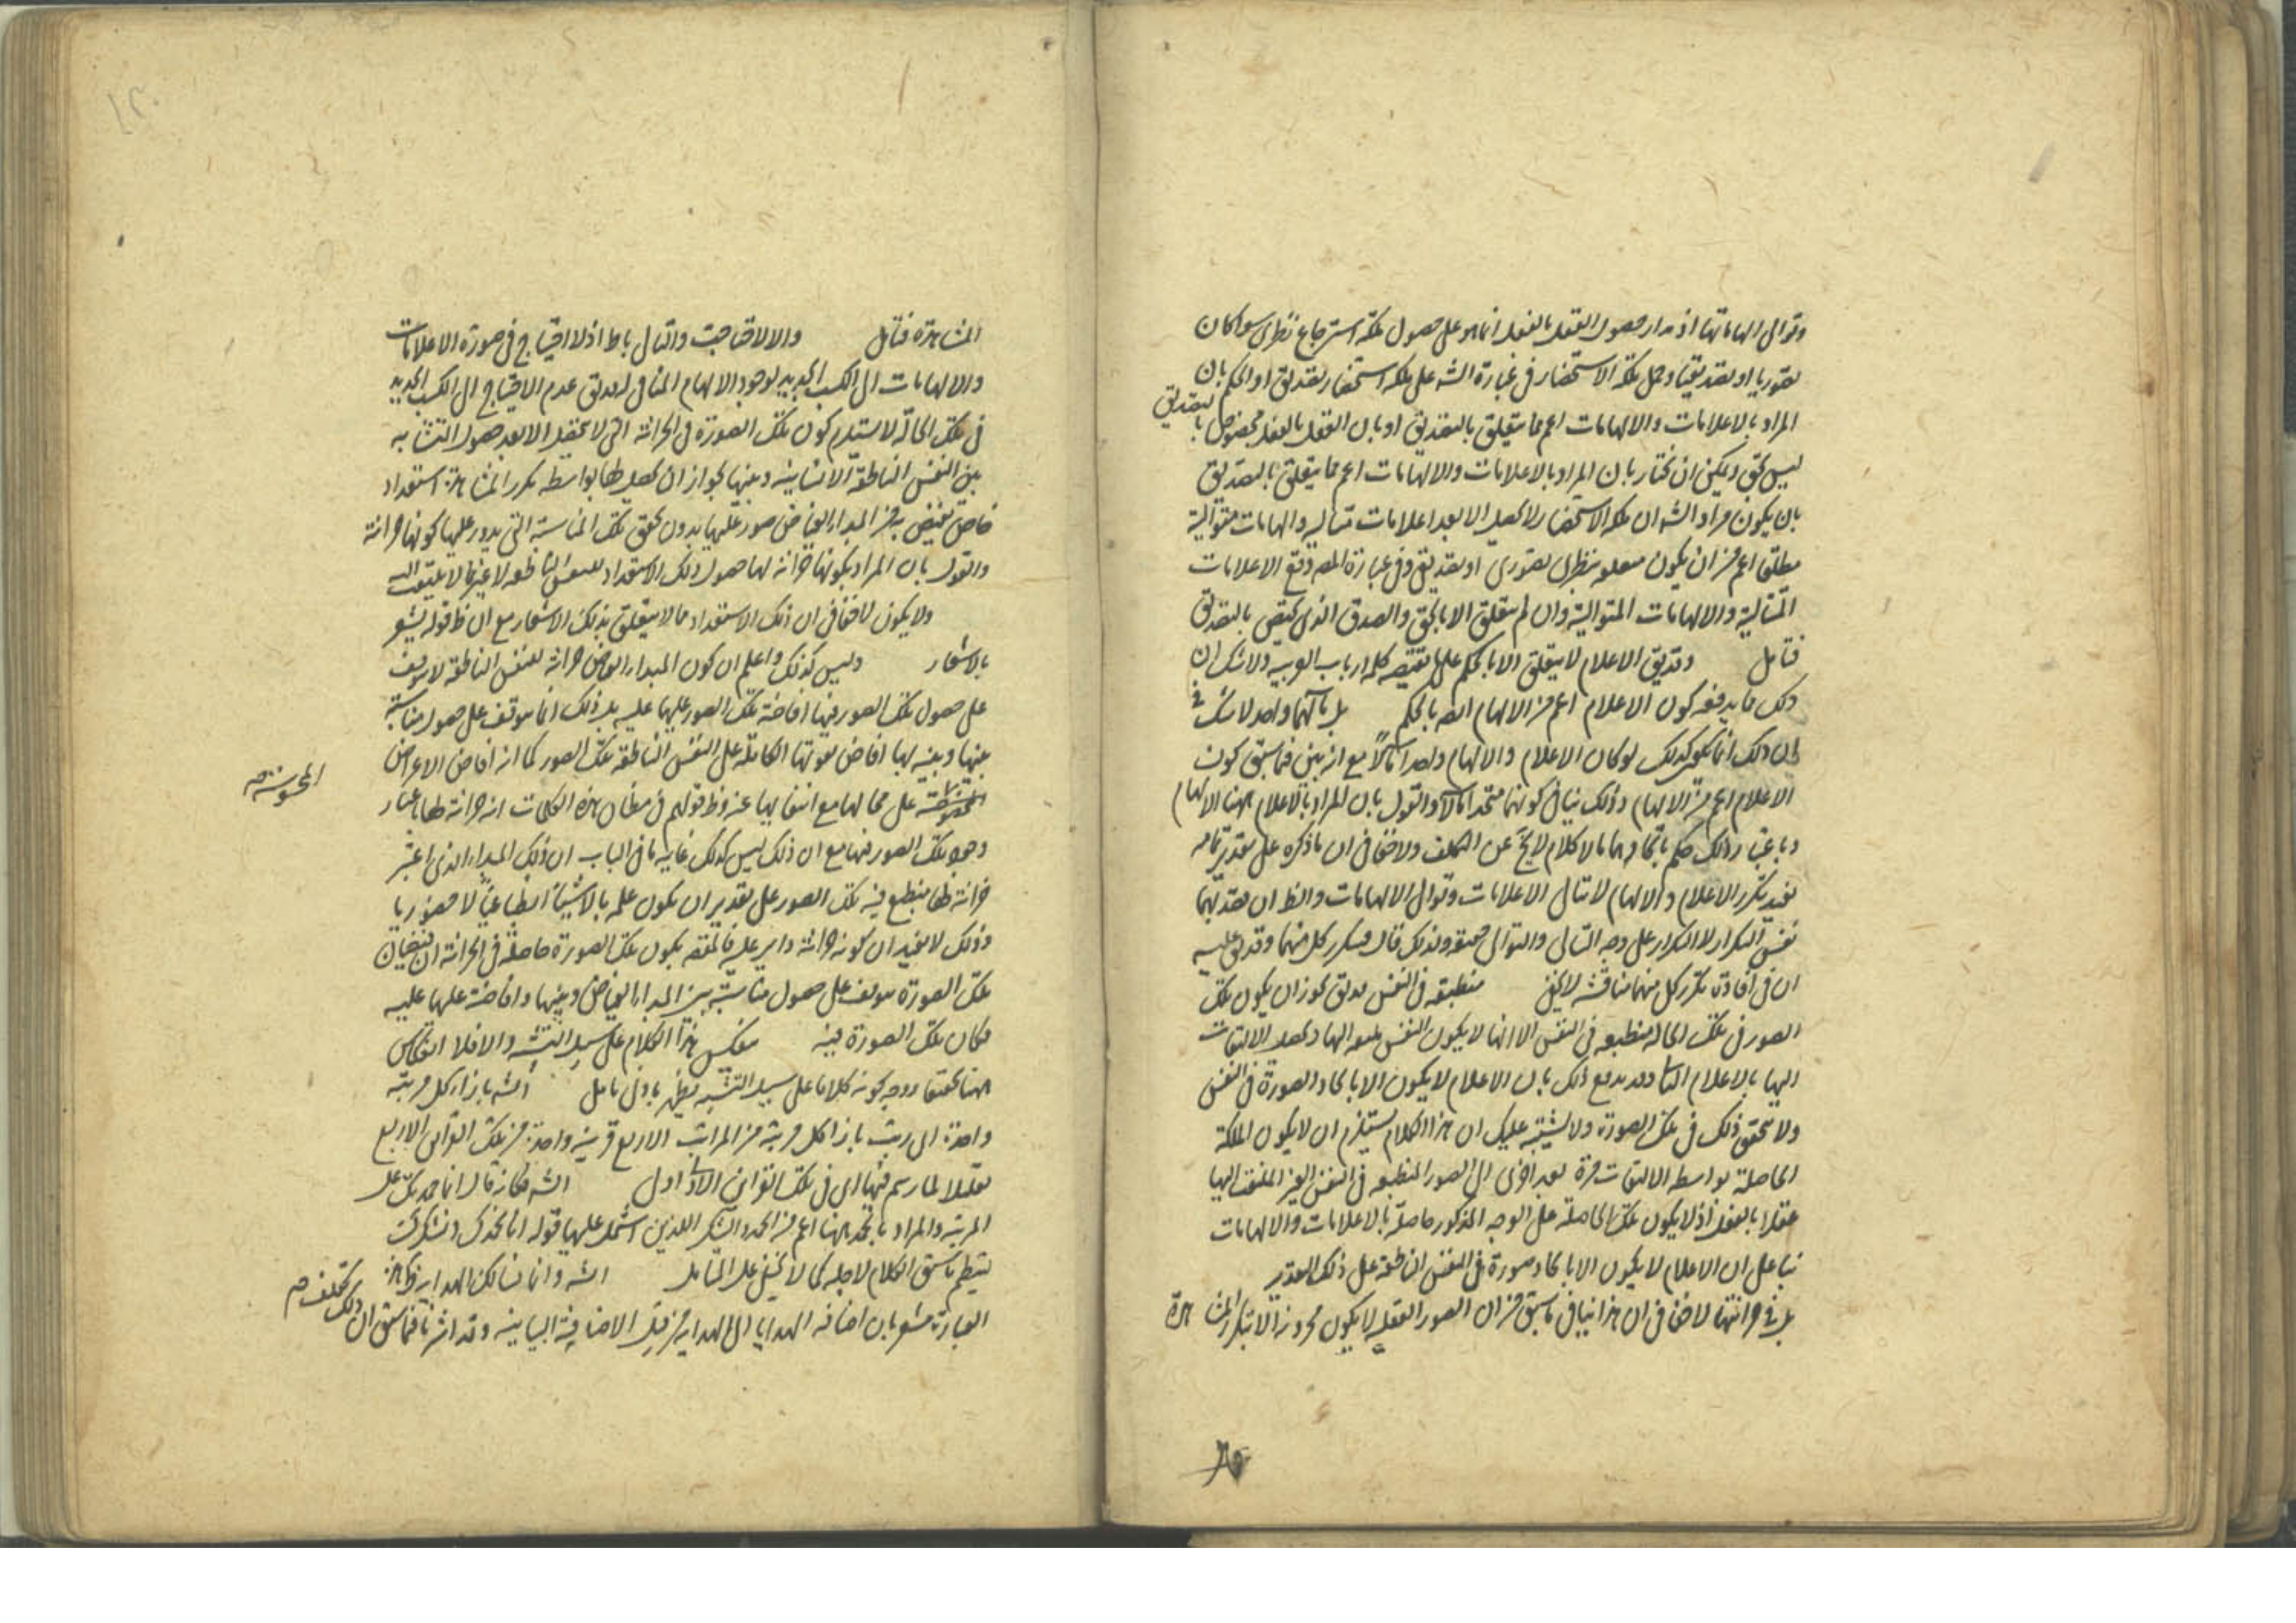 وتوالى الهاماتها اذ مدار حصول العقل بالفعل انما هو على حصول ملكة استرجاع نظرى سوا كان
تصوريا او تصديقيا وحمل ملكة الاستحضار فى عبارة الشه على ملكة استحضار تصديق او الحكم بان
المراد بالاعلامات والالهامات اعم مما يتعلق بالتصديق او بان العقل بالفعل مخصوص بالتصديق
ليس بحق ويمكن ان نختار بان المراد بالاعلامات والالهامات اعم مما يتعلق بالتصديق
بان يكون مراد الشه ان ملكة الاستحضار لا يحصل الا بعد اعلامات متتالية والهامات متوالية
مطلقا اعم من ان يكون متعلقه بنظرى تصورى او تصديقى وفى عبارة المص وقع الاعلامات
المتتالية والالهامات المتوالية وان لم يتعلق الا بالحق والصدق الذى يختص بالتصديق
فتامل وقد يق الاعلام لا يتعلق الا بالحكم على ما يقتضيه كلام ارباب العربية ولا شك ان
ذلك ما يدفعه كون الاعلام اعم من الالهام المص بالحكم بل مآلهما واحد لا شك فى
ان ذلك انما يكون كذلك لو كان الاعلام والالهام واحدا مآلا مع انه بين فيما سبق كون
الاعلام اعم من الالهام وذلك ينافى كونهما متحدا مآلا والقول بان المراد بالاعلام ههنا الالهام
وباعتبار ذلك حكم باتحادهما مآلا كلام لا يخ عن التكلف ولا خفا فى ان ما ذكره على تقدير تمامه
يفيد تكرر الاعلام والالهام لا تتالى الاعلامات وتوالى الالهامات والظ ان مقصدهما
نفس التكرار لا التكرار على وجه التتالى والتوالى ولذلك قال فيتكرر كل منهما وقد يق عليه
ان فى افادته تكرر كل منهما مناقشة لا يخفى منطبعه فى النفس قد يق يجوز ان يكون تلك
الصور فى تلك الحالة منطبعه فى النفس الا انها لا يكون النفس ملتفتة اليها ويحصل الالتفات
اليها بالاعلام الثانى وقد يدفع ذلك بان الاعلام لا يكون الا بايجاد الصورة فى النفس
ولا يتحقق ذلك فى تلك الصورة ولا يشتبه عليك ان هذا الكلام يستلزم ان لا يكون الملكة
الحاصلة بواسطه الالتفات مرة بعد اخرى الى الصور المنطبعه فى النفس الغير الملتفت اليها
عقلا بالفعل اذ لا يكون تلك الحاصلة على الوجه المذكور حاصلة بالاعلامات والالهامات
بنا على ان الاعلام لا يكون الا بايجاد صورة فى النفس الناطقة على ذلك التقدير
بل فى خزانتها لا خفا فى ان هذا ينافى ما سبق من ان الصور العقلية لا يكون مخزونة الا بتكرار المشاهدة
المشاهدة فتامل والا لاقتاجت والتالى باطل اذ لا احتياج فى صورة الاعلامات
والالهامات الى الكسب الجديد لوجود الالهام المنافى له قد يق عدم الاحتياج الى الكسب الجديد
فى تلك الحالة لا يستلزم كون تلك الصورة فى الخزانة التى لا يتحقق الا بعد حصول التشابه
بين النفس الناطقة الانسانية وبينها لجواز ان يحصل لها بواسطه تكرر المشاهدة استعداد
خاص يفيض به من المبداء الفياض صور عليها بدون تحقق تلك المناسبة التى يدور عليها كونها خزانة
والقول بان المراد بكونها خزانة لها حصول ذلك الاستعداد للنفس الناطقه لا غير مما لا يلتفت اليه
ولا يكون لا خفا فى ان ذلك الاستعداد مما لا يتعلق بذلك الاشعار مع ان ظ قوله يشعر
بالاشعار وليس كذلك واعلم ان كون المبداء الفياض خزانة للنفس الناطقه لا يتوقف
على حصول تلك الصور فيها افاضة تلك الصور عليها عليه بل ذلك انما يتوقف على حصول مناسبة
بينها وبينه لها افاض بقوتها الكاملة على النفس الناطقه تلك الصور كما انه افاض الاعراض
المحسوسة على محالها مع انتفائها عنه وظ قولهم فى مظان هذه الكلمات انه خزانة لها باعتبار
المحسوسة صح
وجود تلك الصور فيها مع ان ذلك ليس كذلك غاية ما فى الباب ان ذلك المبداء الذى اعتبر
خزانة لها ينطبع فيه تلك الصور على تقدير ان يكون علمه بالاشياء انطباعيا لا حضوريا
وذلك لا يفيد ان كونه خزانة داير عليه فالمقصود بكون تلك الصورة حاصلة فى الخزانة ان فيضان
تلك الصورة موقوف على حصول مناسبة بين المبداء الفياض وبينها وافاضة عليها عليه
فكان تلك الصورة فيه منعكس هذا الكلام على سبيل التشبيه والا فلا انعكاس
ههنا تحقيقا ووجه كونه كلاما على سبيل التشبيه يظهر بادنى تامل الشه بازاء كل مرتبة
واحدة اى رتب بازا كل مرتبة من المراتب الاربع قرينة واحدة من تلك القراين الاربع
تعليلا لما رسم فيها اى فى تلك القراين الشه فكانه قال انا نحمدك على
المرتبة والمراد بالحمد ههنا اعم من الحمد والشكر اللذين اشتمل عليهما قوله انا نحمدك ونشكرك
لينتظم ما سبق الكلام لاجله كما لا يخفى على المتامل الشه وانا نسالك الهداية هذه
العبارة مشعر بان اضافة الهدايا الى الهداية من قبيل الاضافة البيانية وقد اشرنا فيما سبق ان ذلك تكلف صح